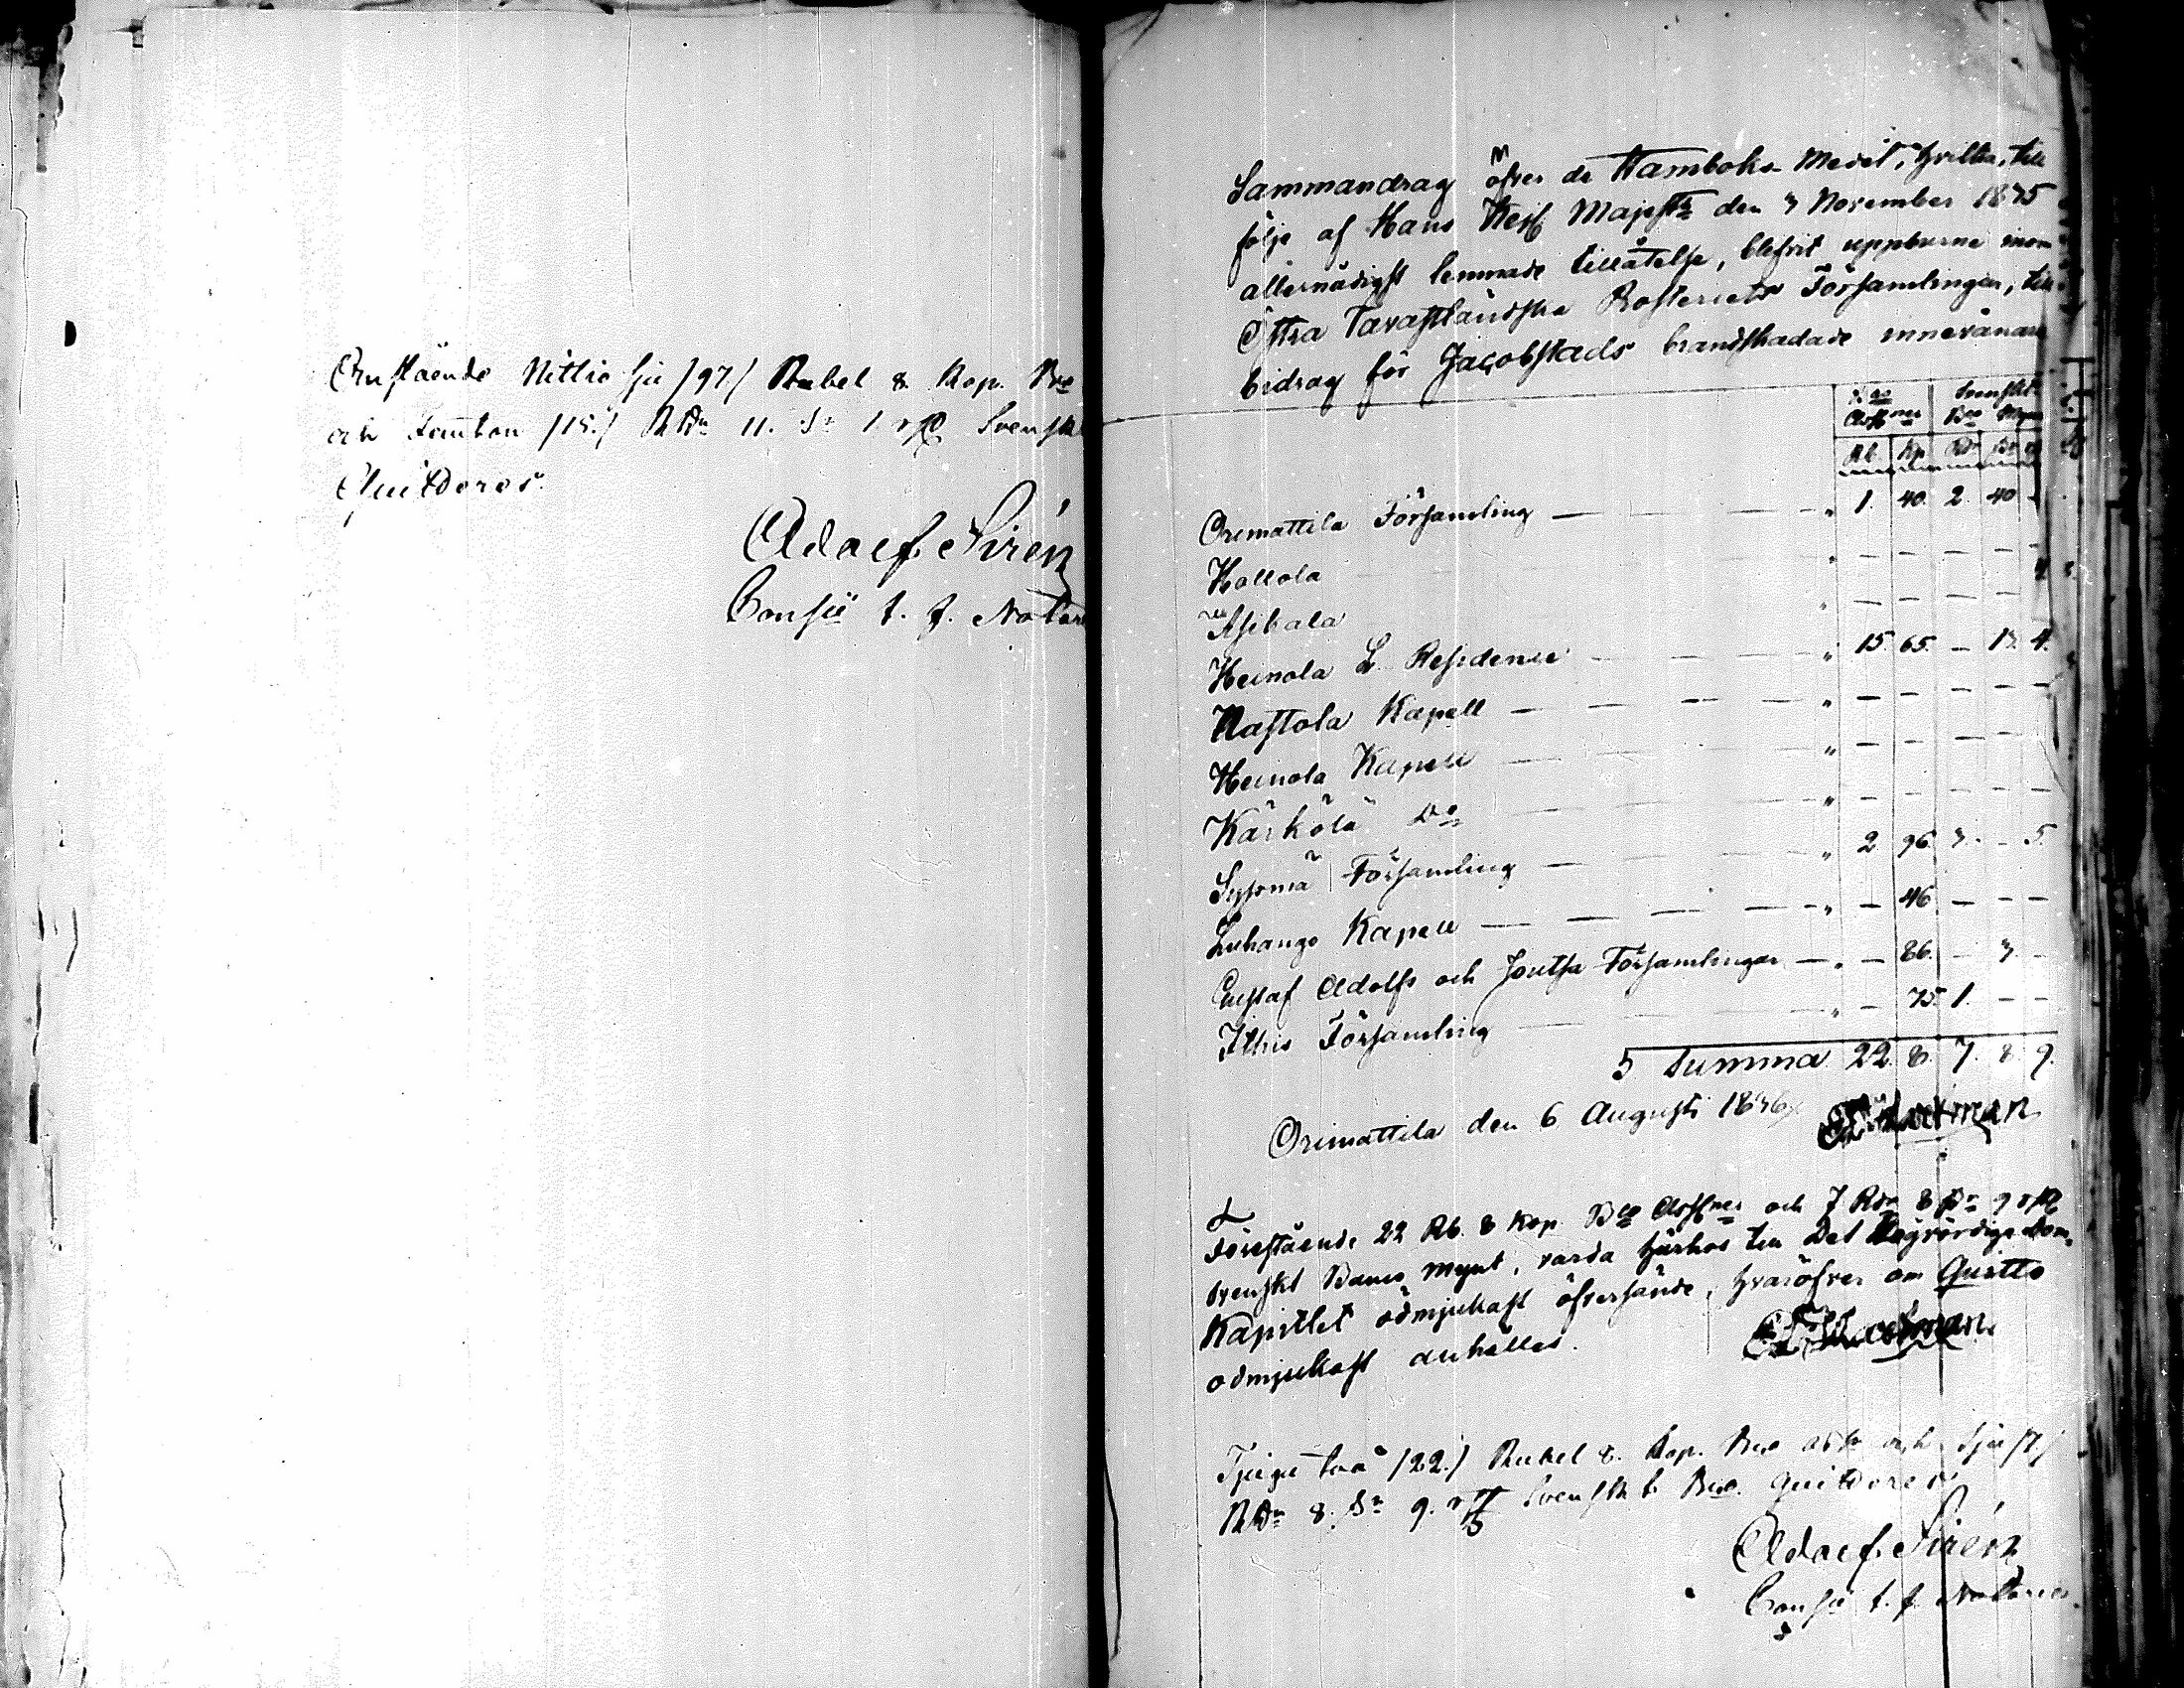 Omstående Nittio sju /97/ Rubel 8 Kop. Bco
och Femton /15./ RDr 11. Sk 1 rst Svenskt
Quitteres.
Adolf Sirén
Cons: t. f. Notarie
Sammandrag öfver de Hamboks-Medel, hvilka, till
följe af Hans Kejs Majestts den 7 November 1835
allernådigst lemnade tillåtelse, blifvit uppburne inom
Östra Tavastländska Prosteriets Församlingar, till
bidrag för Jacobstads brandskadade innevånare
Bco Assgner Svenskt Bco Mynt
Rb. Kp Rdr sk r
Orimattila Församling — — — " 1. 40. 2. 40 -
Hollola — — — — — —
Asikala " — — — —
Heinola L. Residence — — — " 15. 65. — 13. 4.
Nastola Kapell — — — — " — — — — —
Heinola Kapell — — — " — — — — —
Kärkölä Do — — — " — — — — —
Sysmä Församling — — — " 2. 96. 3. — 5.
Luhango Kapell — — — — " — 46. — — —
Gustaf Adolfs och Joutsa Församlingar — " — 86. — 3. —
Ithis Församling — — — " — 75. 1. — —
Summa 22. 8. 7. 8. 9.
Orimattila den 6 Augusti 1836.
Förestående 22 Rb. 8 Kop. Bco Assgner och 7 Rdr 8 sk 9 rst
Svenskt Banco Mynt, varda härhos till Det Högvördiga Dom-
Kapitlet ödmjukast öfversände, hvaröfver om Quitto
ödmjukast anhålles.
Tjugu två /22./ Rubel 8. Kop. Bco Ass och Sju /7./
RDr 8. Sk 9. rst Svenskt Bco. Quitteres.
Adolf Sirén
Cons: t. f. Notarie.